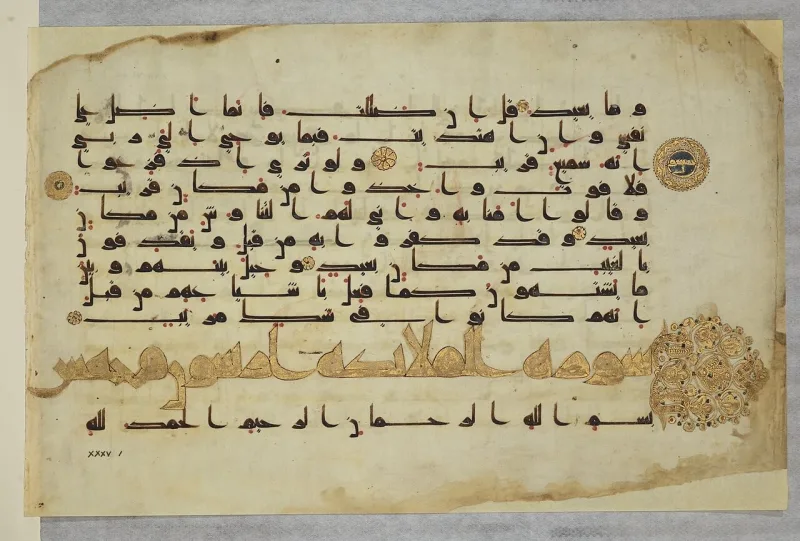 وما يعيد قل إن ضللت فإنما أضل على
نفسي وإن اهتديت فبما يوحي إلي ربي
إنه سميع قريب ولو ترى إذ فزعوا
فلا فوت وأخذوا من مكان قريب
وقالوا آمنا به وأنى لهم التناوش من مكان
بعيد وقد كفروا به من قبل ويقذفون
بالغيب من مكان بعيد وحيل بينهم وبين
ما يشتهون كما فعل بأشياعهم من قبل
إنهم كانوا في شك مريب
سورة الملائكة أربعون وخمس
بسم الله الرحمن الرحيم الحمد لله
XXXV 1